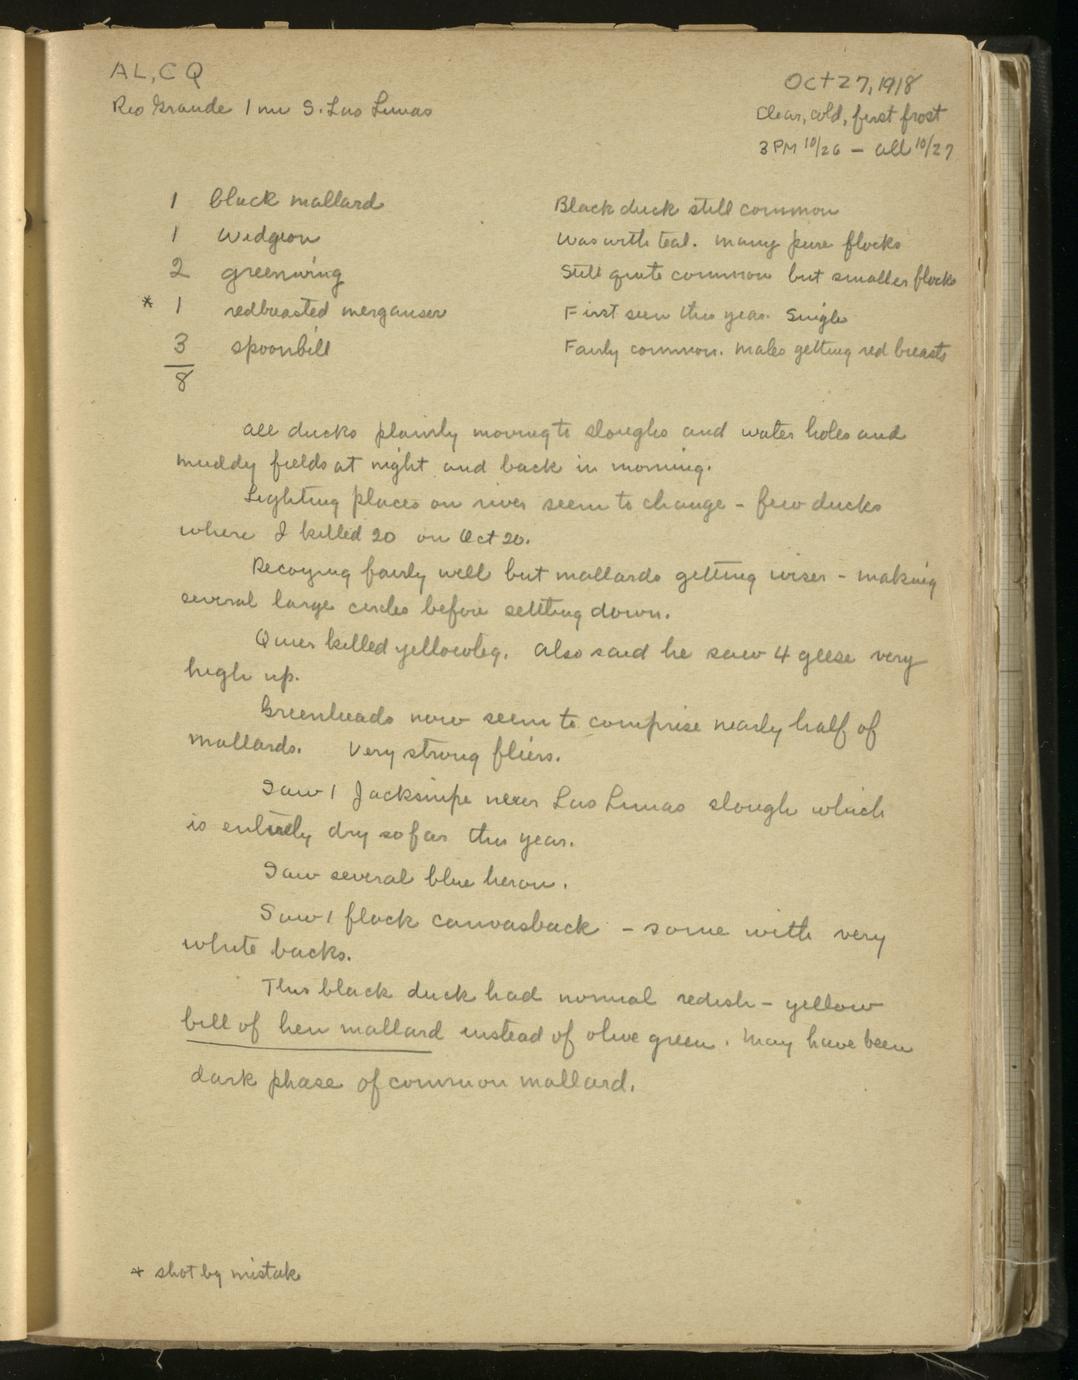 AL, CQ
Oct 27, 1918
Rio Grande 1 mi S. Los Lunas
Clear, cold, first frost
3 PM 10/26 – all 10/27
1 black mallard Black duck still common
1 widgeon Was with teal. Many pure flocks
2 greenwing Still quite common but smaller flocks
* 1 redbreasted merganser First seen this year. Single
3 spoonbill Fairly common. Males getting red breasts
8
All ducks plainly moving to sloughs and water holes and
muddy fields at night and back in morning.
Lighting places on river seem to change – few ducks
where I killed 20 on Oct 20.
Decoying fairly well but mallards getting wiser – making
several large circles before settling down.
Quier killed yellowleg. Also said he saw 4 geese very
high up.
Greenheads now seem to comprise nearly half of
mallards. Very strong fliers.
Saw 1 Jacksnipe near Los Lunas slough which
is entirely dry so far this year.
Saw several blue heron.
Saw 1 flock canvasback – some with very
white backs.
This black duck had normal redish – yellow
bill of hen mallard instead of olive green. May have been
dark phase of common mallard.
* shot by mistake